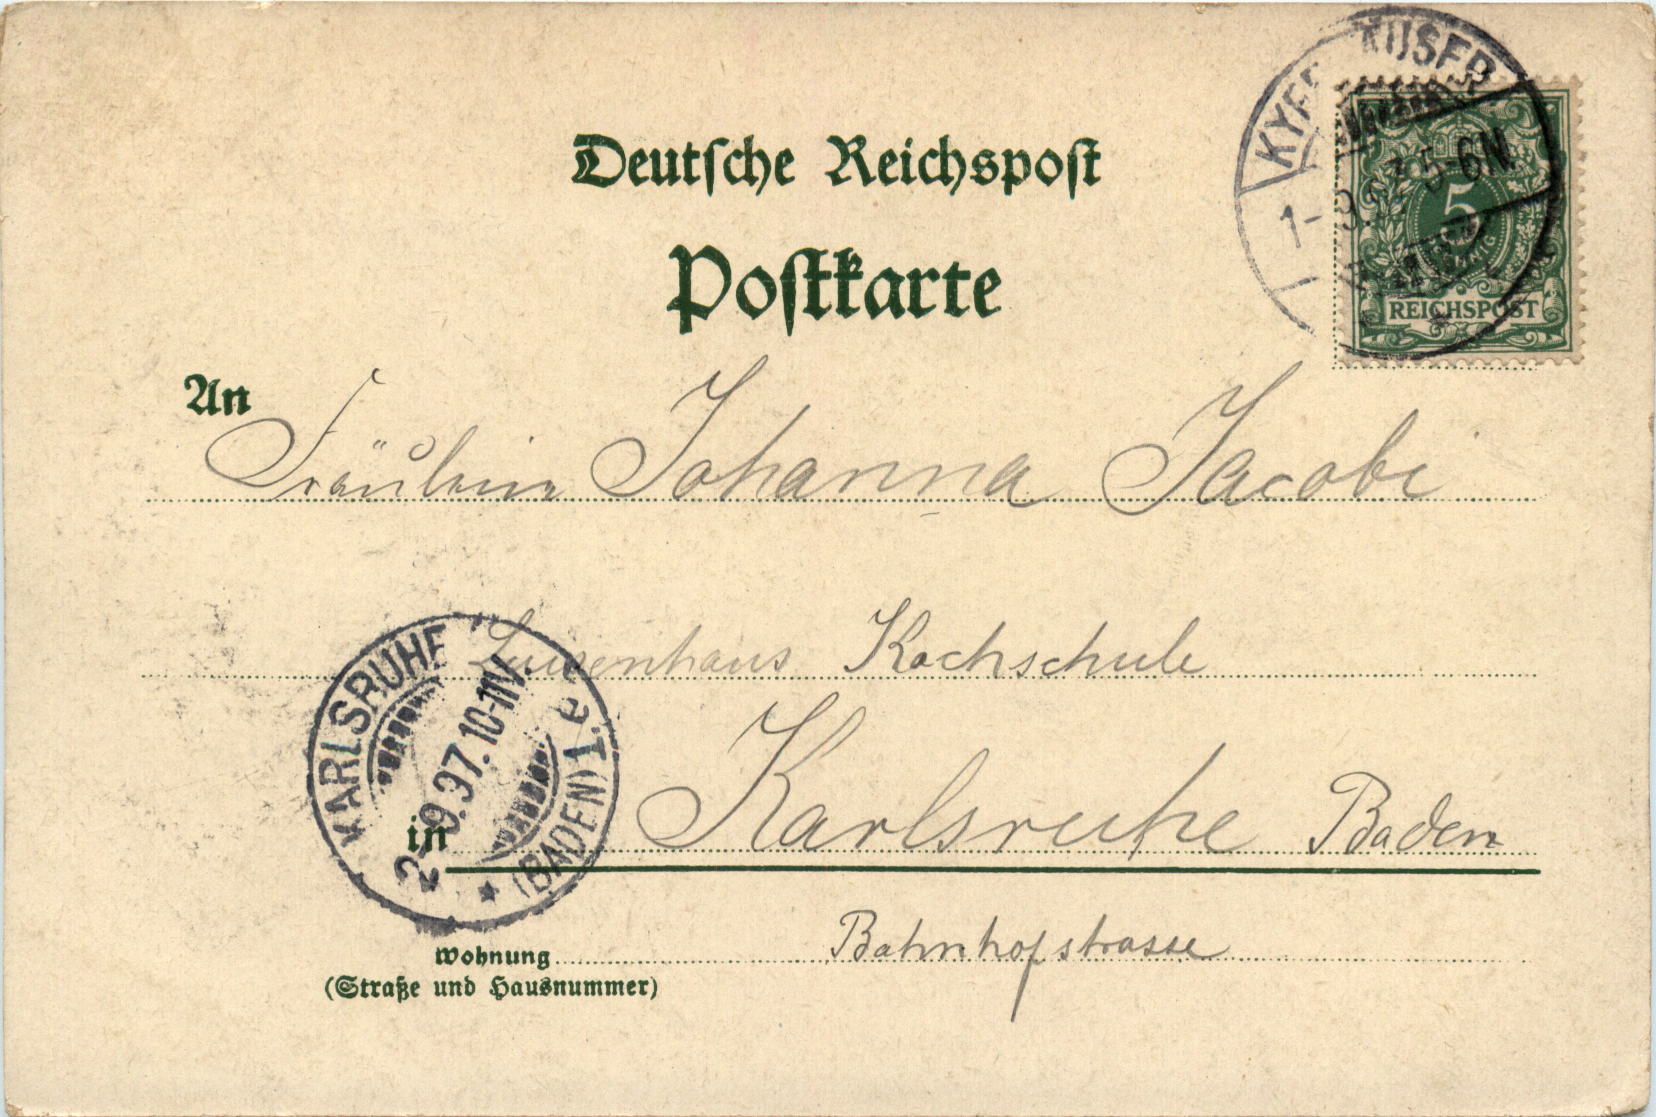 Deutsche Reichspost
Postkarte
KYFFHÄUSER
1-9.97 5-6N
5
PFENNIG
REICHSPOST
An
Fräulein Johanna Jacobi
Luisenhaus Kochschule
in Karlsruhe Baden
Wohnung Bahnhofstrasse
(Straße und Hausnummer)
KARLSRUHE
2-9.97.10-11V.
(BADEN) 1 * e.T.